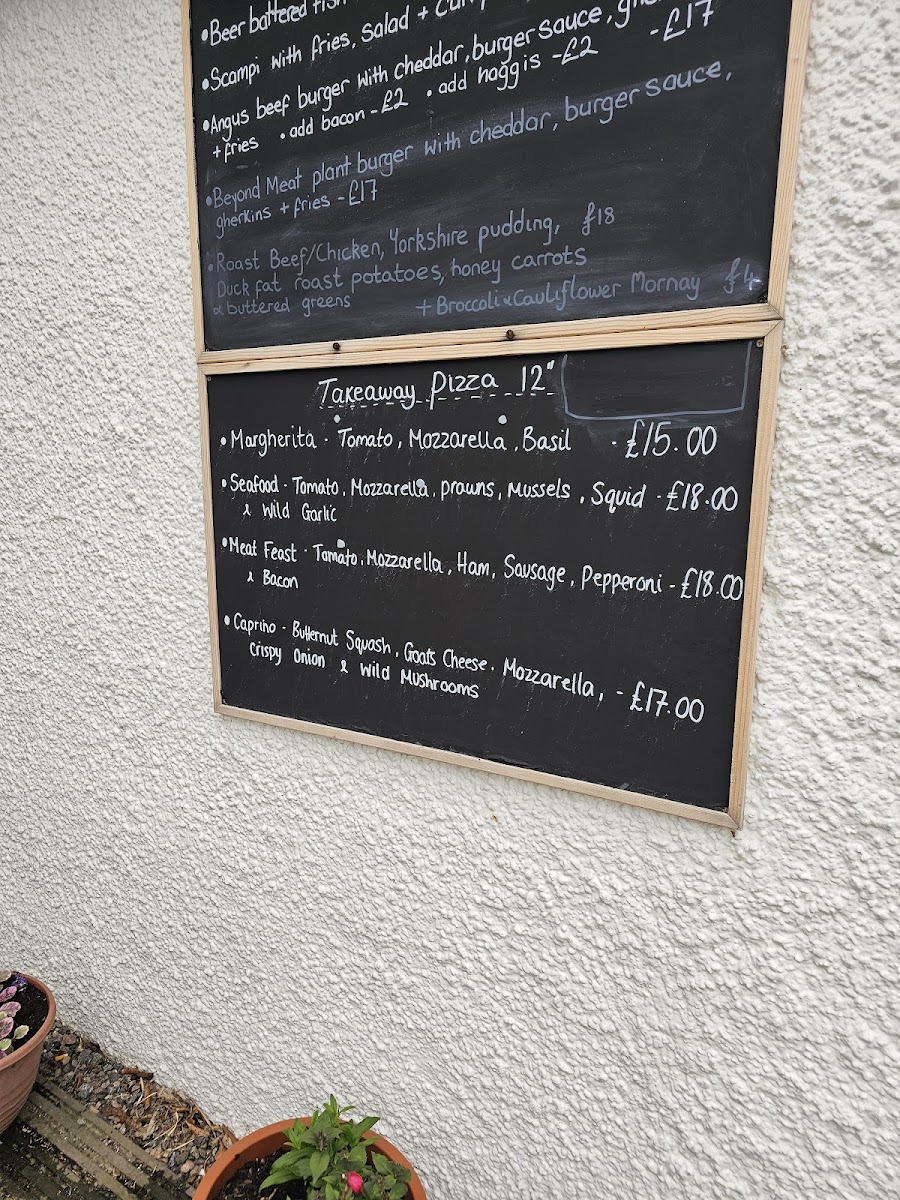 •Beer battered fish
•Scampi with fries, salad +
•Angus beef burger with cheddar, burger sauce,
+ fries •add bacon - £2 •add haggis - £2 - £17
•Beyond Meat plant burger with cheddar, burger sauce,
gherkins + fries - £17
•Roast Beef/Chicken, Yorkshire pudding, £18
Duck fat roast potatoes, honey carrots
& buttered greens + Broccoli & Cauliflower Mornay £4
Takeaway Pizza 12"
•Margherita - Tomato, Mozzarella, Basil - £15.00
•Seafood - Tomato, Mozzarella, prawns, Mussels, Squid - £18.00
& Wild Garlic
•Meat Feast - Tomato, Mozzarella, Ham, Sausage, Pepperoni - £18.00
& Bacon
•Caprino - Butternut Squash, Goats Cheese, Mozzarella, - £17.00
Crispy Onion & Wild Mushrooms